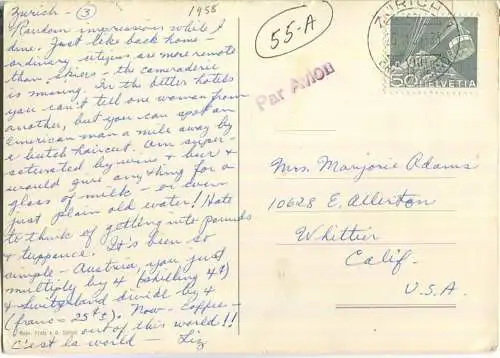 Zurich - 3 1958
Random impressions while I
dine. Just like back home -
ordinary citizens are more remote
than skiers - the camaraderie
is missing. In the better hotels
you can't tell one woman from
another, but you can spot an
American man a mile away by
a butch haircut. Am super-
saturated by wine & beer &
would give anything for a
glass of milk - or even
just plain old water! Hate
to think of getting into pounds
& tuppence. It's been so
simple - Austria, you just
multiply by 4 (shilling 4¢)
& Switzerland divide by 4
(franc = 25¢±). Now - Coffee -
out of this world!!
C'est la world - Liz
55-A
Par Avion
ZÜRICH
50 HELVETIA
Mrs. Marjorie Adams
10628 E. Allerton
Whittier
Calif.
U.S.A.